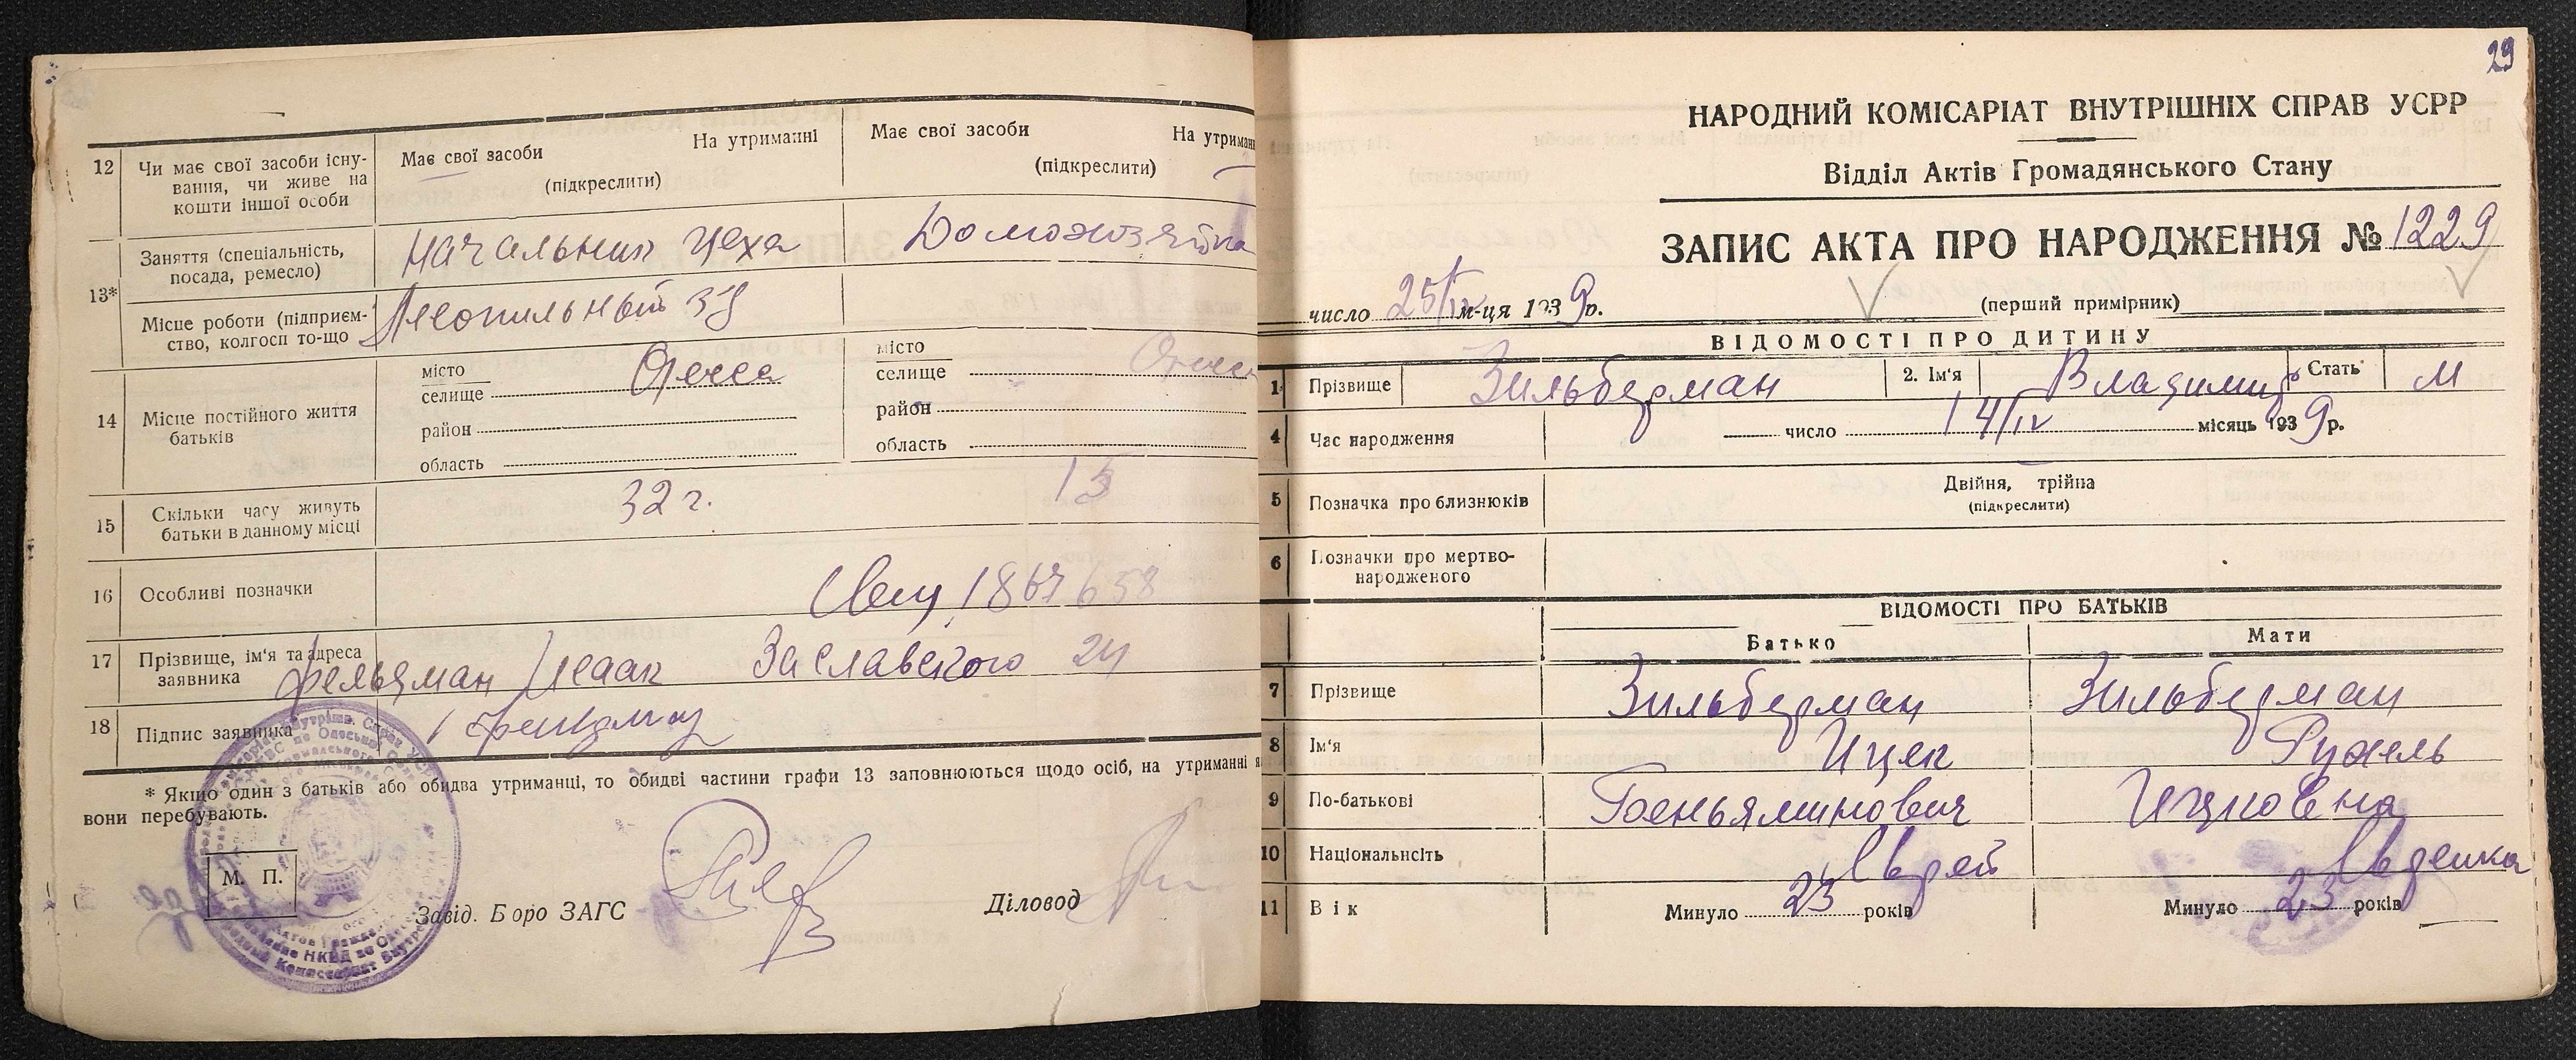 12 Чи має свої засоби існу-
вання, чи живе на
кошти іншої особи
Має свої засоби На утриманні
(підкреслити)
Має свої засоби На утриман
(підкреслити)
13*
Заняття (спеціальність,
посада, ремесло)
Начальник цеха
Домохозяйка
Місце роботи (підприєм-
ство, колгосп то-що
Лесопильный
14 Місце постійного життя
батьків
місто
селище Одесса
район
область
місто
селище Одесса
район
область
15 Скільки часу живуть
батьки в данному місці
32 г.
15
16 Особливі позначки
17 Прізвище, ім'я та адреса
заявника
Фельдман Исаак Заславского 24
18 Підпис заявника
* Якщо один з батьків або обидва утриманці, то обидві частини графи 13 заповнюються щодо осіб, на утриманні я
вони перебувають.
М. П.
Завід. Бюро ЗАГС
Діловод
29
НАРОДНИЙ КОМІСАРІАТ ВНУТРІШНІХ СПРАВ УСРР
Відділ Актів Громадянського Стану
ЗАПИС АКТА ПРО НАРОДЖЕННЯ № 1229
число 25/IV м-ця 1939 р.
(перший примірник)
ВІДОМОСТІ ПРО ДИТИНУ
1 Прізвище Зильберман 2. Ім'я Владимир Стать М
4 Час народження число 14/IV місяць 1939 р.
5 Позначка про близнюків
Двійня, трійна
(підкреслити)
6 Позначки про мертво-
народженого
ВІДОМОСТІ ПРО БАТЬКІВ
Батько Мати
7 Прізвище Зильберман Зильберман
8 Ім'я Ицек Рухель
9 По-батькові Беньяминович Ицковна
10 Національність Еврей Еврейка
11 Вік Минуло 23 років Минуло 23 років